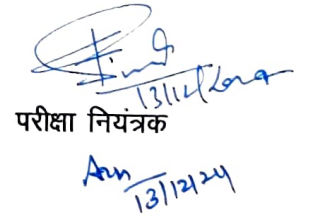 13/12/2024
परीक्षा नियंत्रक
13/12/24